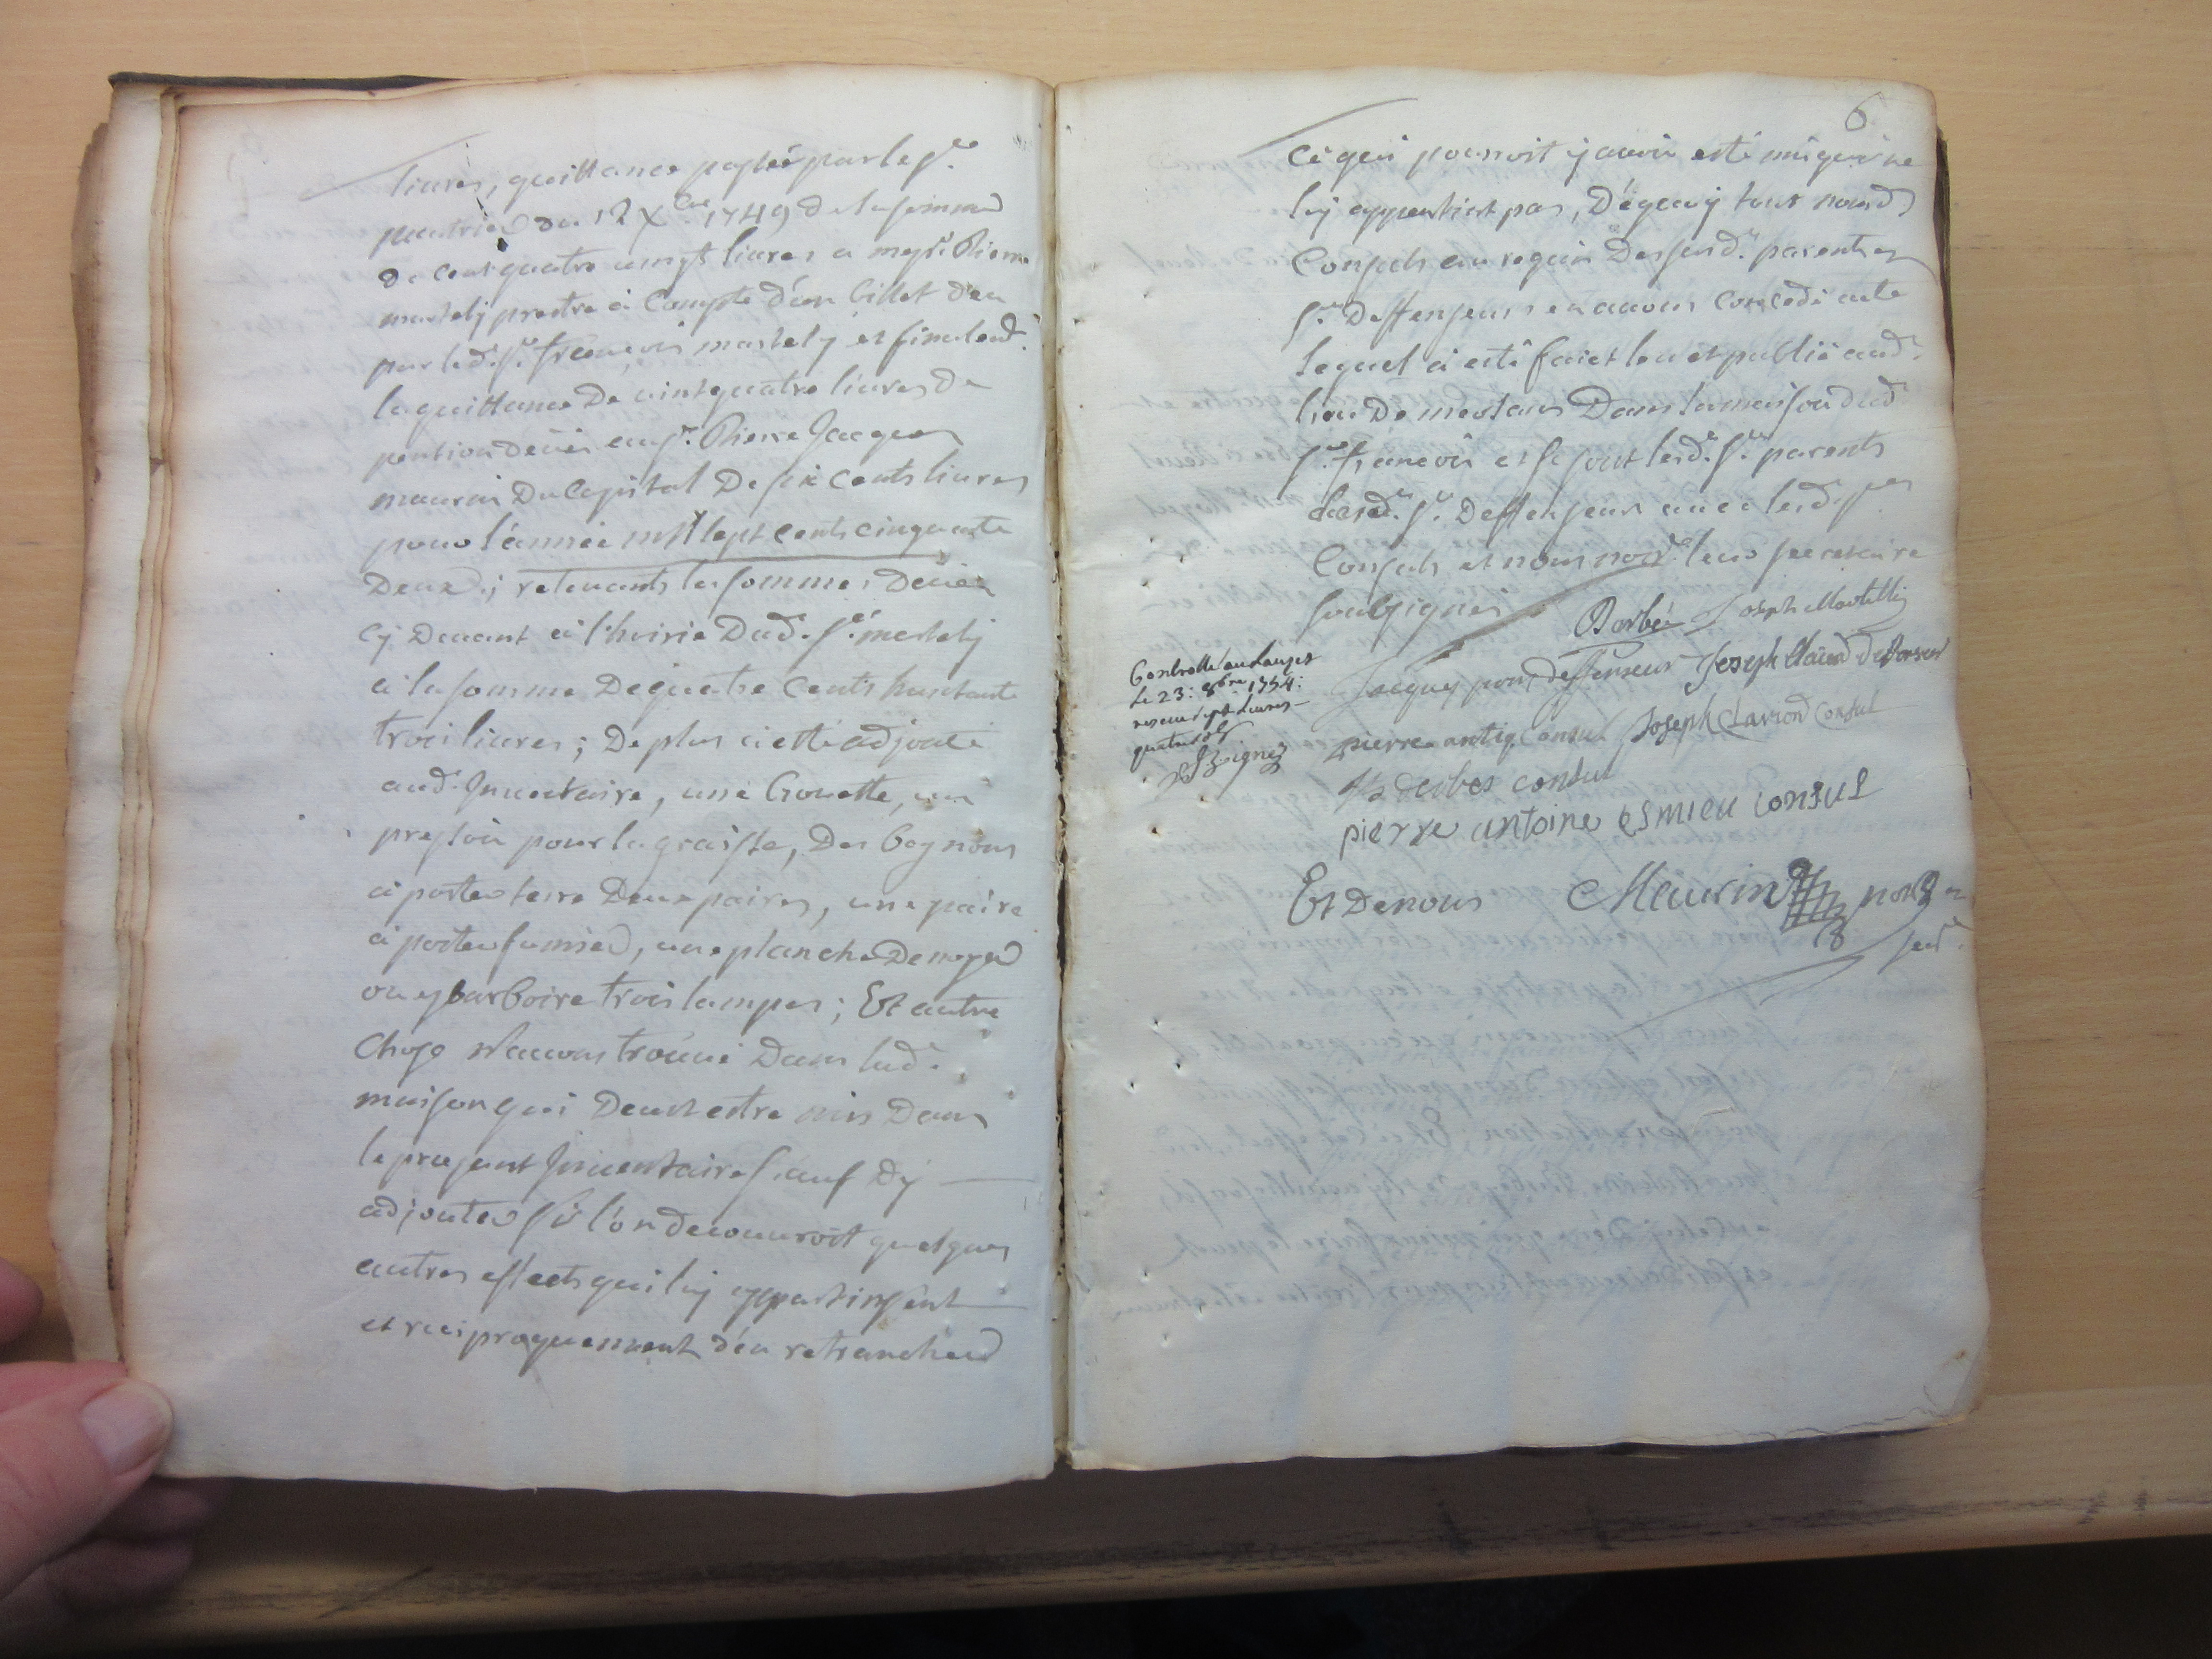 livres, quittance passée par le Sr.
du 12 Xbre 1749 de la somme
de cent quatre vingt livres a messr. Pierre
martelÿ prestre à Compte d'un billet deu
par led. Sr. françois martelÿ et finalemt.
la quittance de vint quatre livres de
pention deüe au Sr. Pierre Jacques
maurin du Capital de six cents livres
pour l'année mil sept cents cinquante
deux; retenants les sommes deües
cÿ devant à l'hoirie dud. Sr. martelÿ
à la somme de quatre cents huictante
trois livres; de plus a esté adjouté
aud. Inventaire, une Civette, un
pressoir pour la graisse, des
à porter terre deux paires, une paire
à porter fumier, une planche de noyer
ou trois lampes; Et autre
chose N'avons trouvé dans lad.
maison qui deut estre mis dans
le present Inventaire sauf d'ÿ
adjouter sÿ l'on decouvroit quelques
autres effects qui luÿ appartinssent
et reciproquement d'en retrancher
6
ce qui pourroit ÿ avoir esté mis qui ne
luÿ appartient pas, De quoÿ tout nousd.
Consuls au requis desd. parents et
Sr. Deffenseur en avons concedé acte
lequel a esté faict leu et publié aud.
lieu de meolans Dans la maison dud.
Sr. françois et se sont lesd. Srs. parents
lesd. Sr. Deffenseur avec lesd. Srs
Consuls et nous nore. leur secretaire
soubsignés Barbé Joseph Martelly
Jacques pons deffenseur Joseph
Controllé au Lauzet
le 23: 8bre 1754:
receu sept livres
quatre sols
pierre antiq Consul Joseph Clariond Consul
derbes consul
pierre antoine esmieu consul
Et de nous Maurin nore
secr.